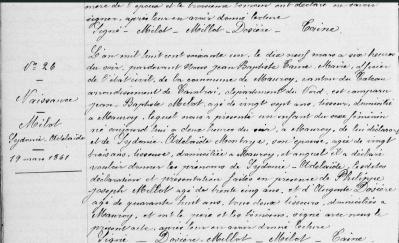 mère de l'époux et le troisième témoin ont déclaré ne savoir
signer, après leur en avoir donné lecture
Signé - Milot - Millot - Dosière - Taine.
N° 26
Naissance
Milot
Sydonie-Adélaïde
19 mars 1861
L'an mil huit cent soixante un, le dix neuf mars à six heures
du soir, pardevant Nous Jean Baptiste Taine Maire, officier
de l'état civil, de la commune de Mauroy, canton du Cateau
arrondissement de Cambrai, département du Nord, est comparu
Jean Baptiste Milot, âgé de vingt sept ans, tisseur, domicilié
à Mauroy, lequel nous a présenté un enfant du sexe féminin
né aujourd'hui à deux heures du soir, à Mauroy, de lui déclarant
et de Sydonie Adélaïde his épouse, âgée de vingt
trois ans, tisseuse, domiciliée à Mauroy, et auquel il a déclaré
vouloir donner les prénoms de Sydonie-Adélaïde, lesdites
déclaration et présentation faites en présence de Philippe
Joseph Millot âgé de trente cinq ans, et d'Auguste Dosière
âgé de quarante huit ans, tous deux tisseurs, domiciliés à
Mauroy, et ont le père et les témoins, signé avec nous le
présent acte, après leur en avoir donné lecture
Signé Dosière - Millot - Milot - Taine